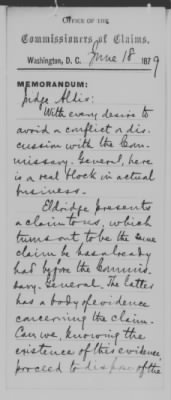 OFFICE OF THE
Commissioners of Claims,
Washington, D. C. June 18 1879
MEMORANDUM:
Judge Aldis:
With every desire to
avoid a conflict or dis-
cussion with the Com-
missary-General, here
is a real block in actual
business.
Eldridge presents
a claim to us, which
turns out to be the same
claim he has already
had before the Commis-
sary-General. The latter
has a body of evidence
concerning the claim.
Can we, knowing the
existence of this evidence,
proceed to dispose of the